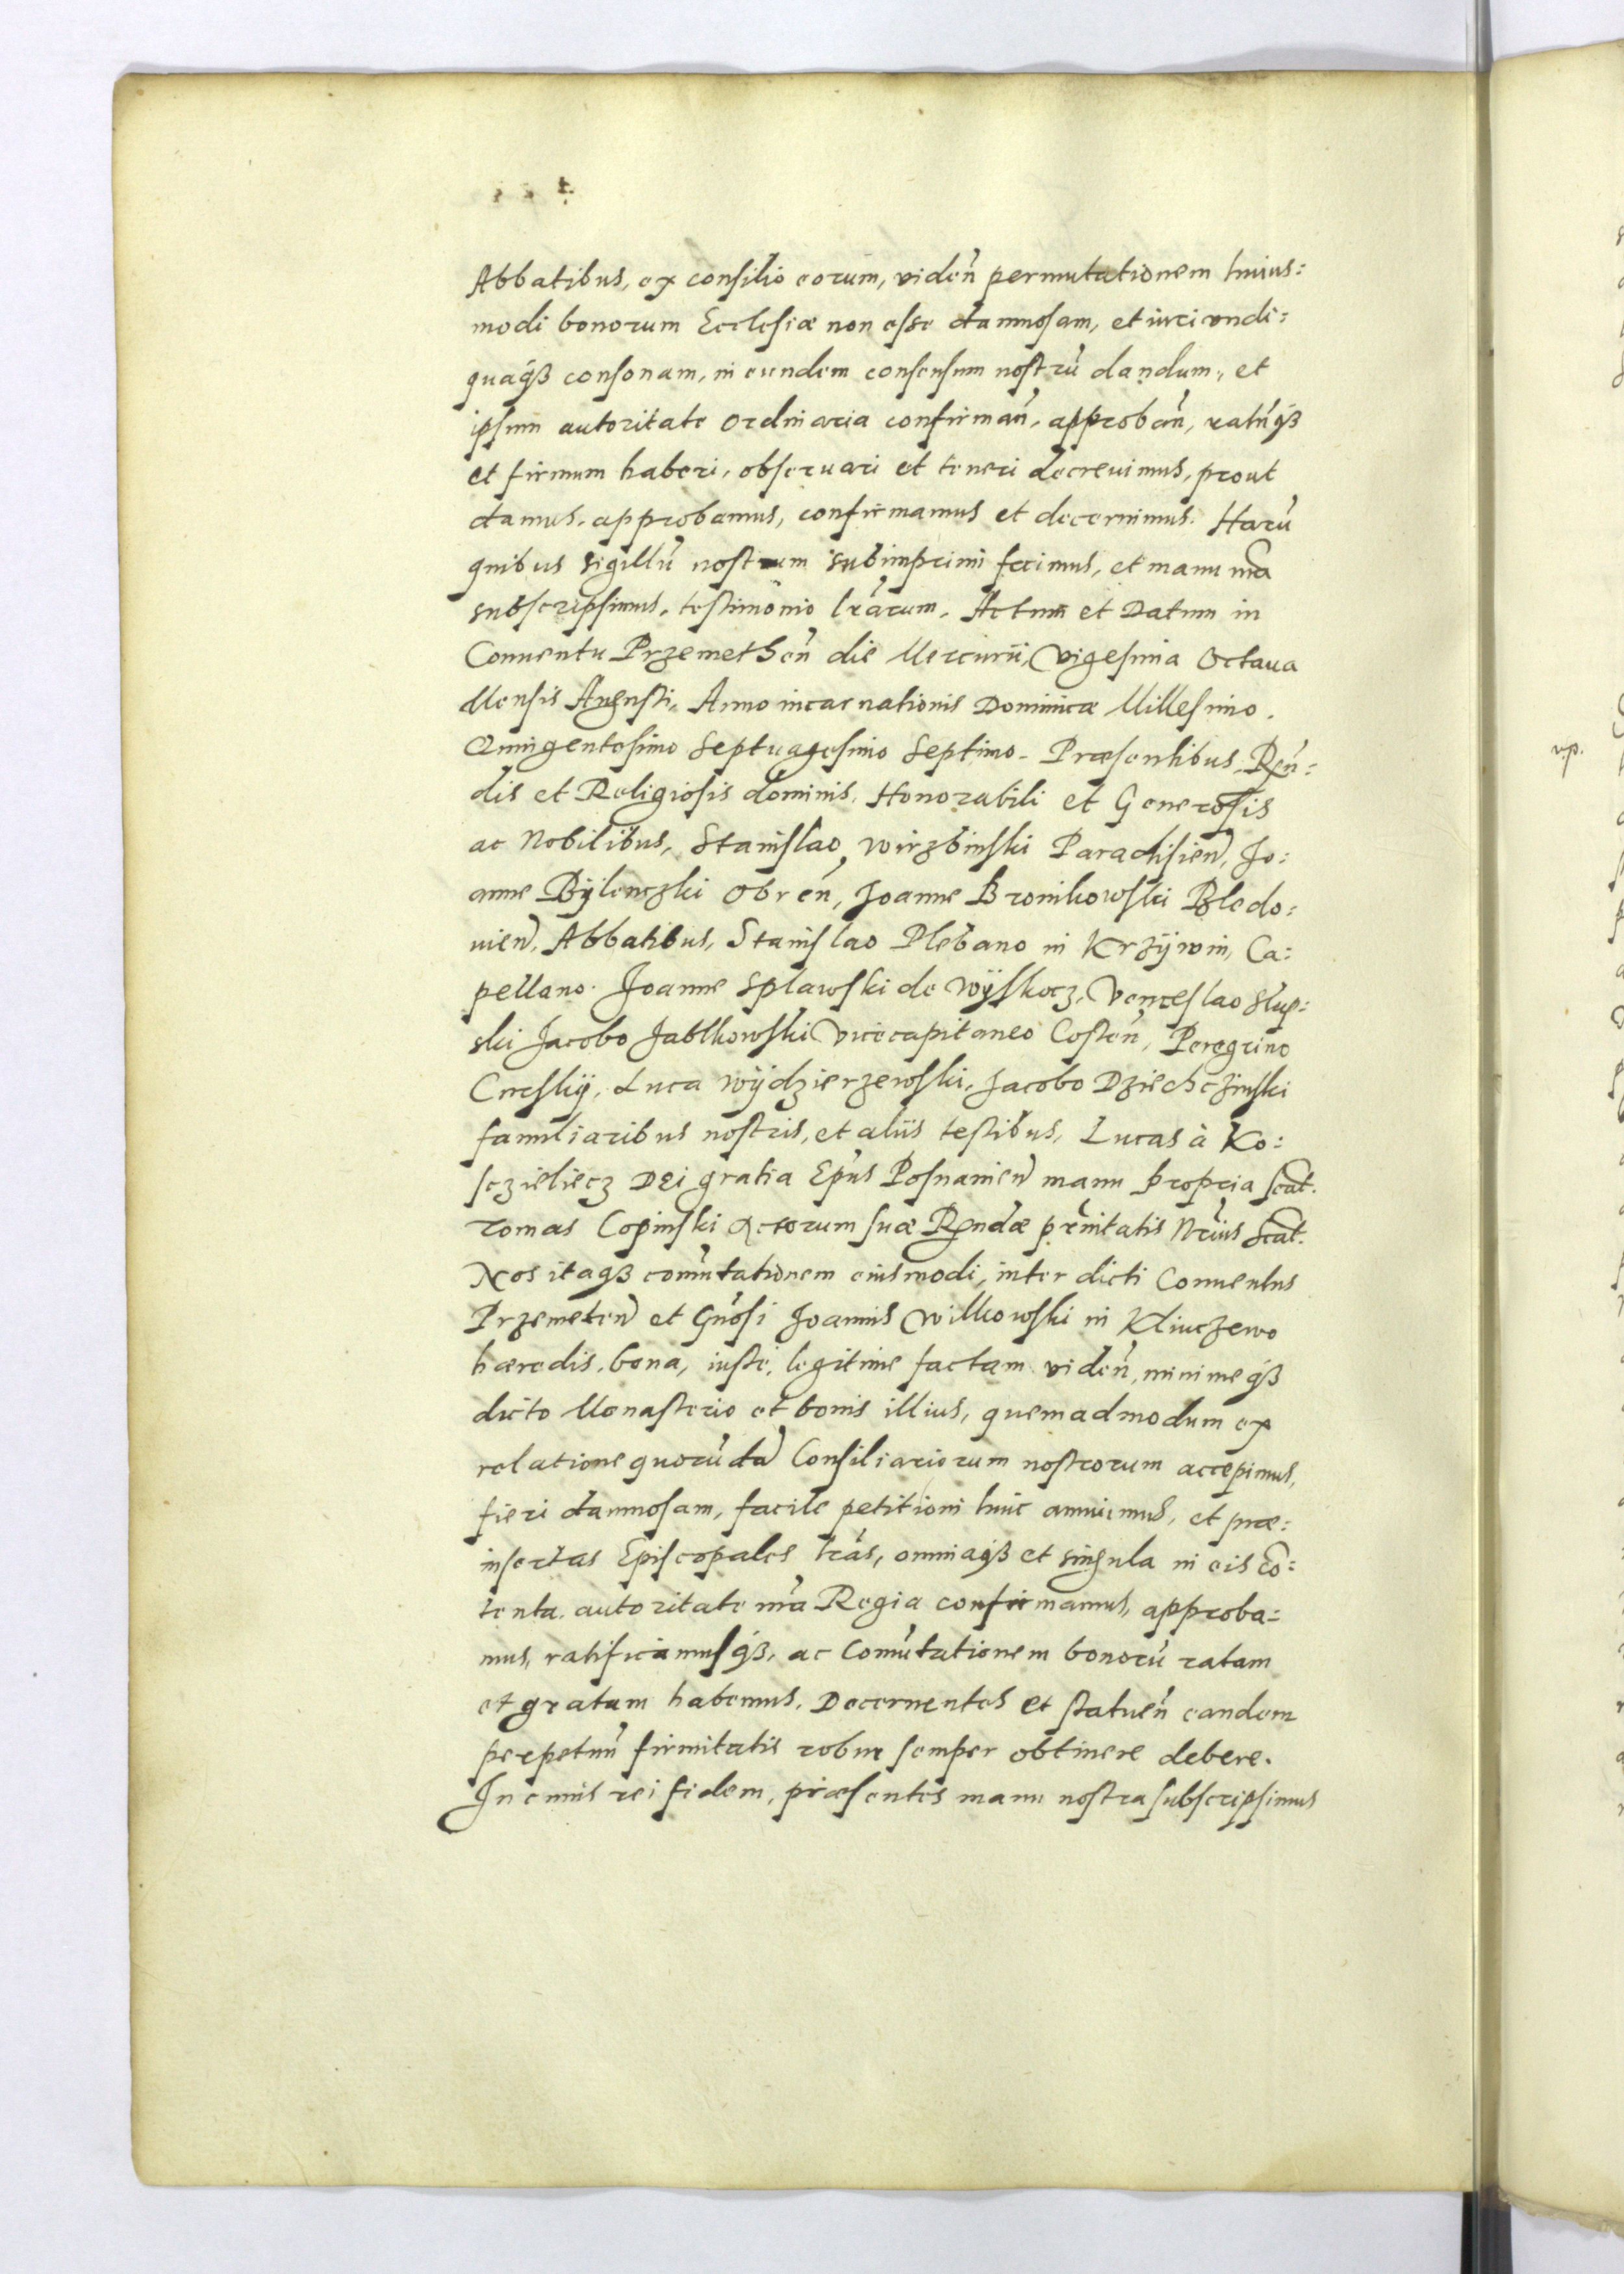 Abbatibus, ex consilio eorum, viden̄ permutationem huius:
modi bonorum Ecclesiæ non esse damnosam, et iuri undi:
quaqꝫ consonam, in eundem consensum nostrū dandum, et
ipsum autoritate ordinaria confirman̄, approban̄, ratūqꝫ
et firmum haberi, obseruari et teneri decreuimus, prout
damus, approbamus, confirmamus et decernimus. Harū
quibus sigillū nostrum subimprimi fecimus, et manu nrā
subscripsimus, testimonio lrārum. Actum et Datum in
Conuentu Przemethen̄ die Mercurii, Vigesima Octaua
Mensis Augusti, Anno incarnationis Dominicæ Millesimo.
Quingentesimo Septuagesimo Septimo. Præsentibus Ren̄:
dis et Religiosis dominis, Honorabili et Generosis
ac Nobilibus, Stanislao Wirzbinski Paradisien̄, Jo:
anne Bÿlenczki Obren̄, Joanne Bronikowski Bledo:
uien̄, Abbatibus, Stanislao Plebano in Krzÿwin, Ca:
pellano. Joanne Splawski de Wÿskocz, Venceslao Slup:
ski Jacobo Jablkowski Vicecapitaneo Costen̄, Peregrino
Luca Wÿdzierzewski, Jacobo Dziechczinski
familiaribus nostris, et aliis testibus, Lucas à Ko:
sczieliecz Dei gratia Ep̄us Posnanien̄ manu propria scat.
Tomas Copinski Actorum suæ Rendæ prnitatis Nrius Scat.
Nos itaqꝫ comūtationem eiusmodi, inter dicti Conuentus
Przemeten̄ et Gn̄osi Joannis Wilkowski in Kliuczewo
hæredis, bona, iuste, legitime factam viden̄, minimeqꝫ
dicto Monasterio et bonis illius, quemadmodum ex
relatione quorūdā Consiliariorum nostrorum accepimus,
fieri damnosam, facile petitioni huic annuimus, et præ:
insertas Episcopales lrās, omniaqꝫ et singula in eis cō:
tenta, autoritate nrā Regia confirmamus, approba:
mus, ratificamusqꝫ, ac Comūtationem bonorū ratam
et gratam habemus. Decernentes et statuen̄ eandem
perpetuū firmitatis robur semper obtinere debere.
In cuius rei fidem, præsentes manu nostra subscripsimus